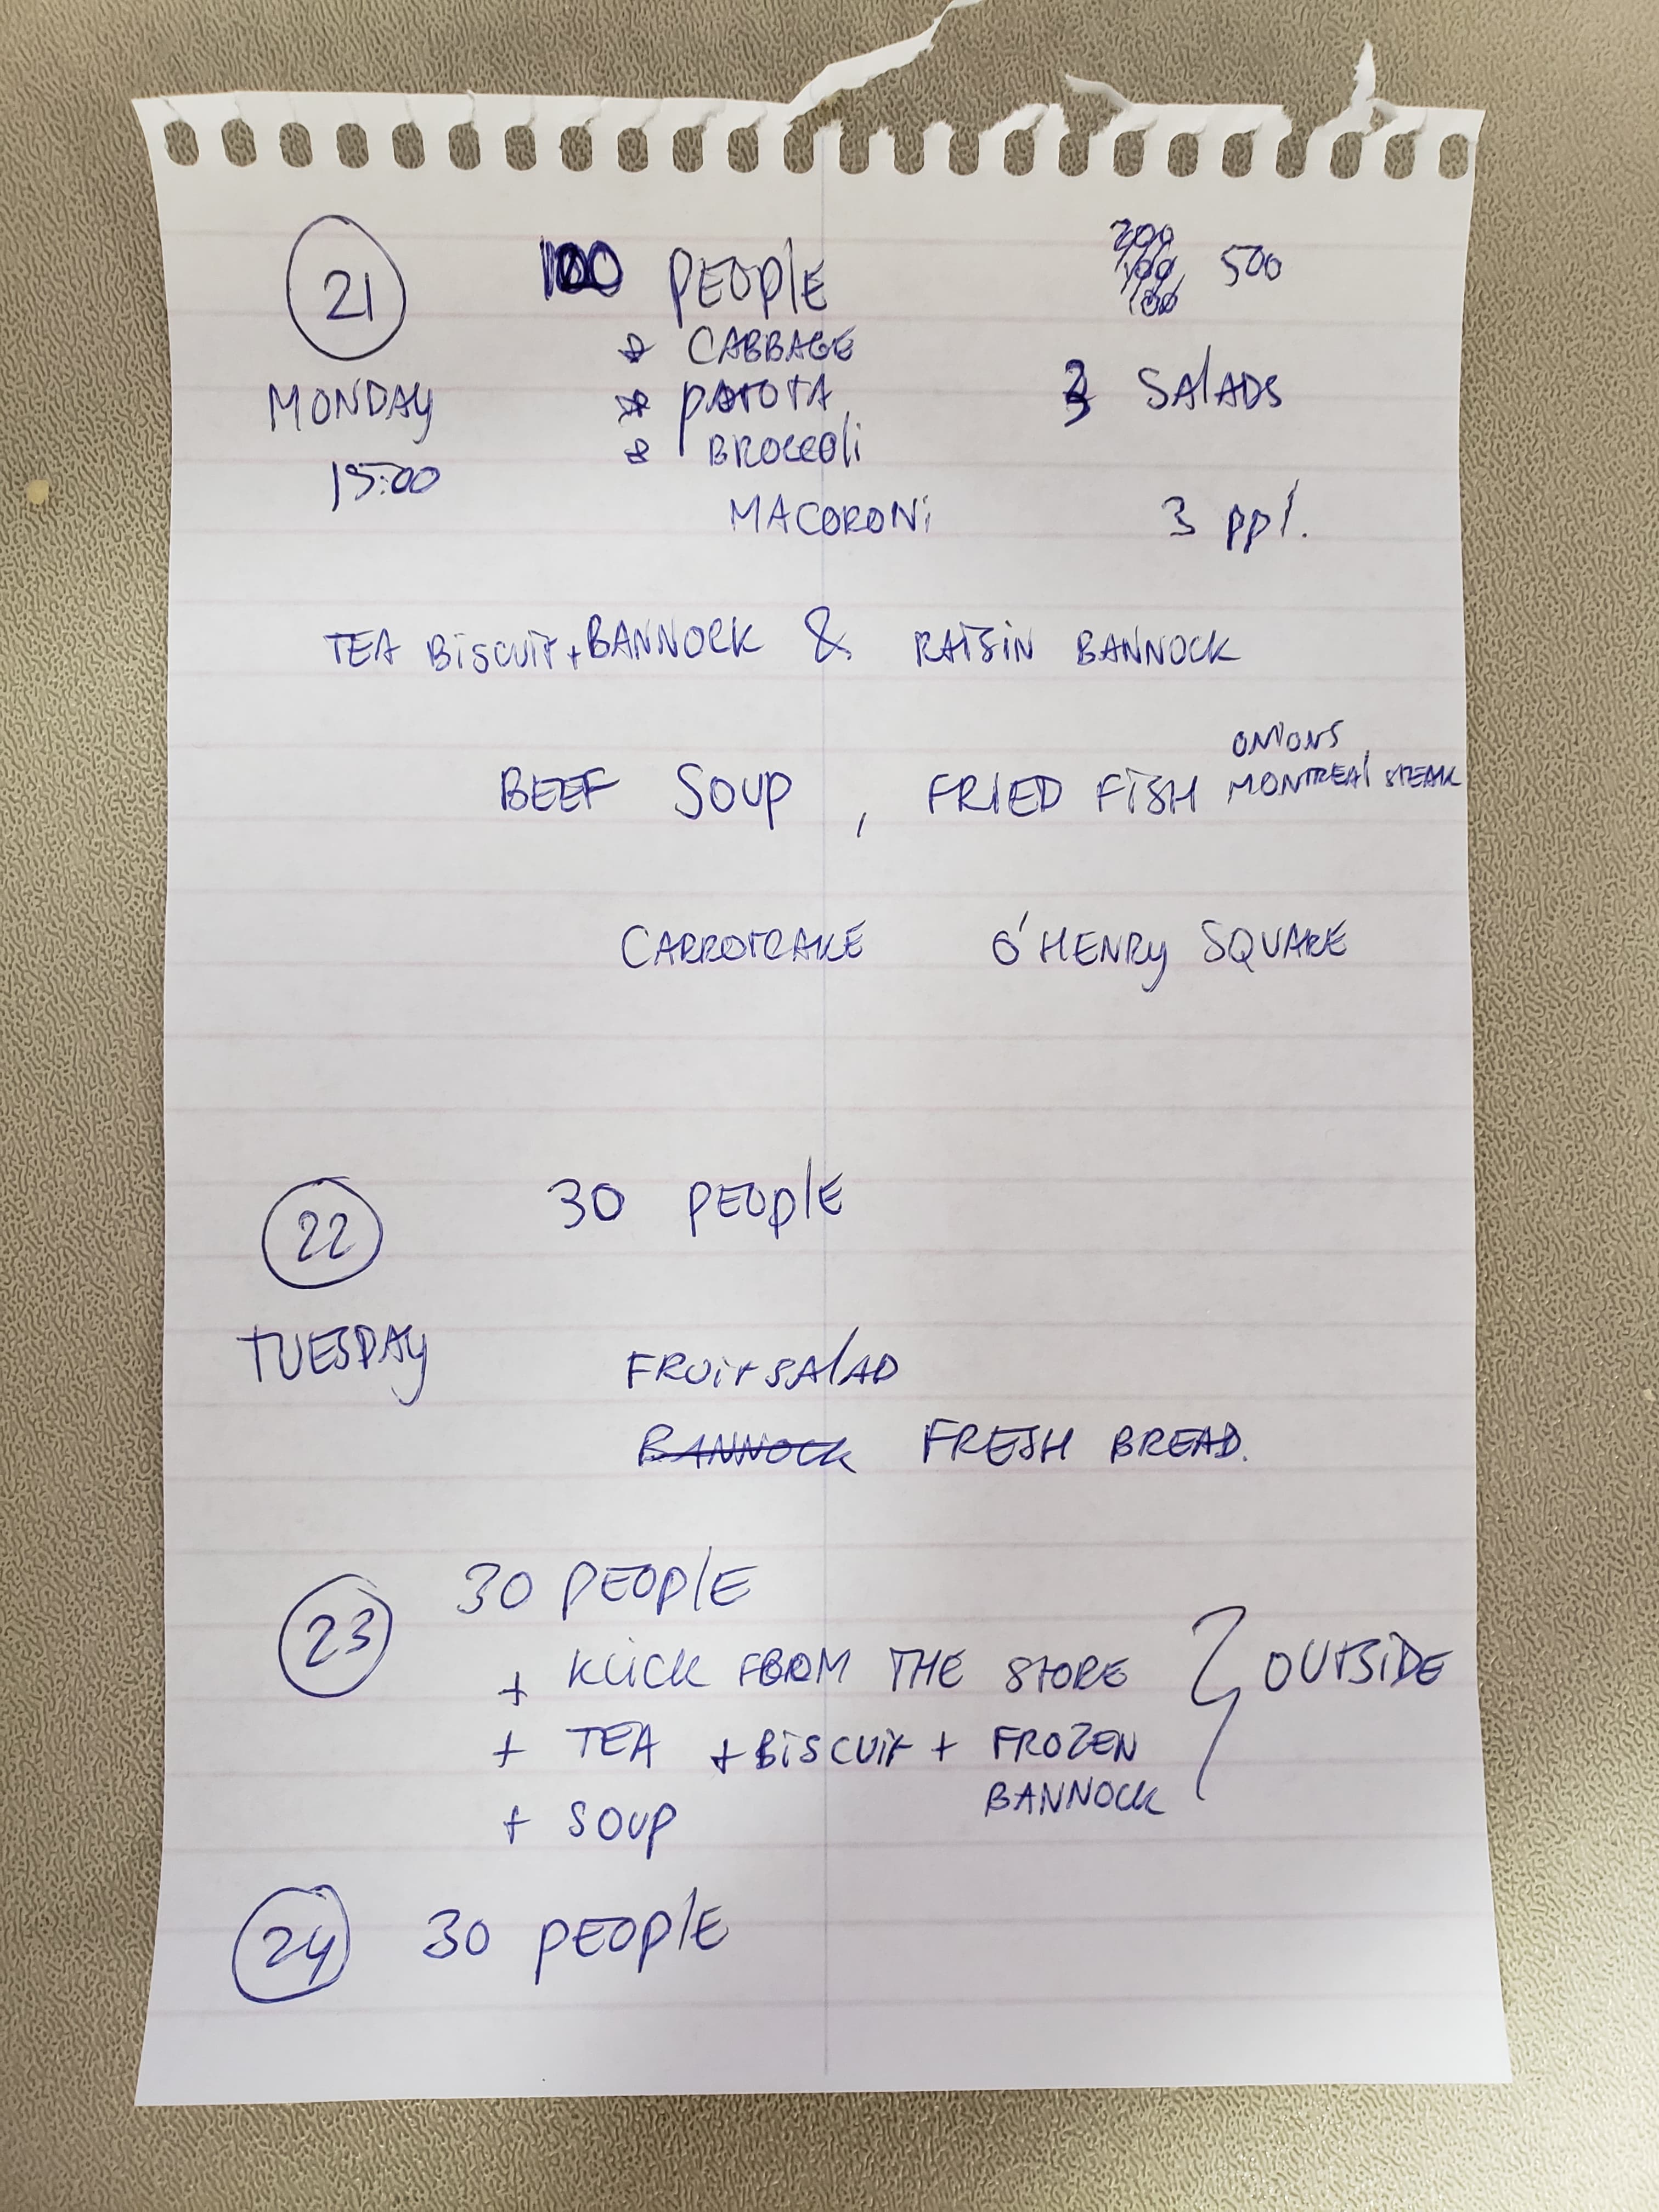 21 100 PEOPLE 500
* CABBAGE
MONDAY * POTOTA 3 SALADS
* BROCCOLI
15:00
MACORONI 3 ppl.
TEA BISCUIT + BANNOCK & RAISIN BANNOCK
ONIONS
BEEF SOUP , FRIED FISH MONTREAL STEAK
CARROTCAKE O'HENRY SQUARE
22 30 PEOPLE
TUESDAY FRUIT SALAD
BANNOCK FRESH BREAD.
23 30 PEOPLE
+ KLICK FROM THE STORE OUTSIDE
+ TEA + BISCUIT + FROZEN
BANNOCK
+ SOUP
24 30 PEOPLE